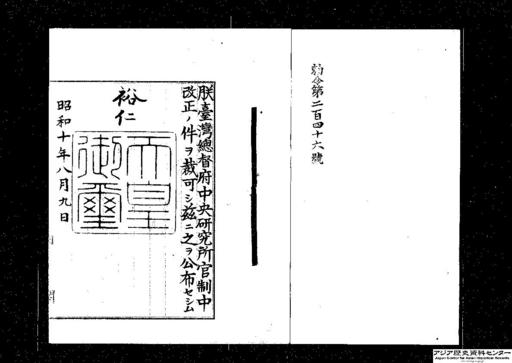 勅令第二百四十六號
朕臺灣總督府中央研究所官制中
改正ノ件ヲ裁可シ茲ニ之ヲ公布セシム
裕仁
天皇
御璽
昭和十年八月九日
アジア歴史資料センター
Japan Center for Asian Historical Records